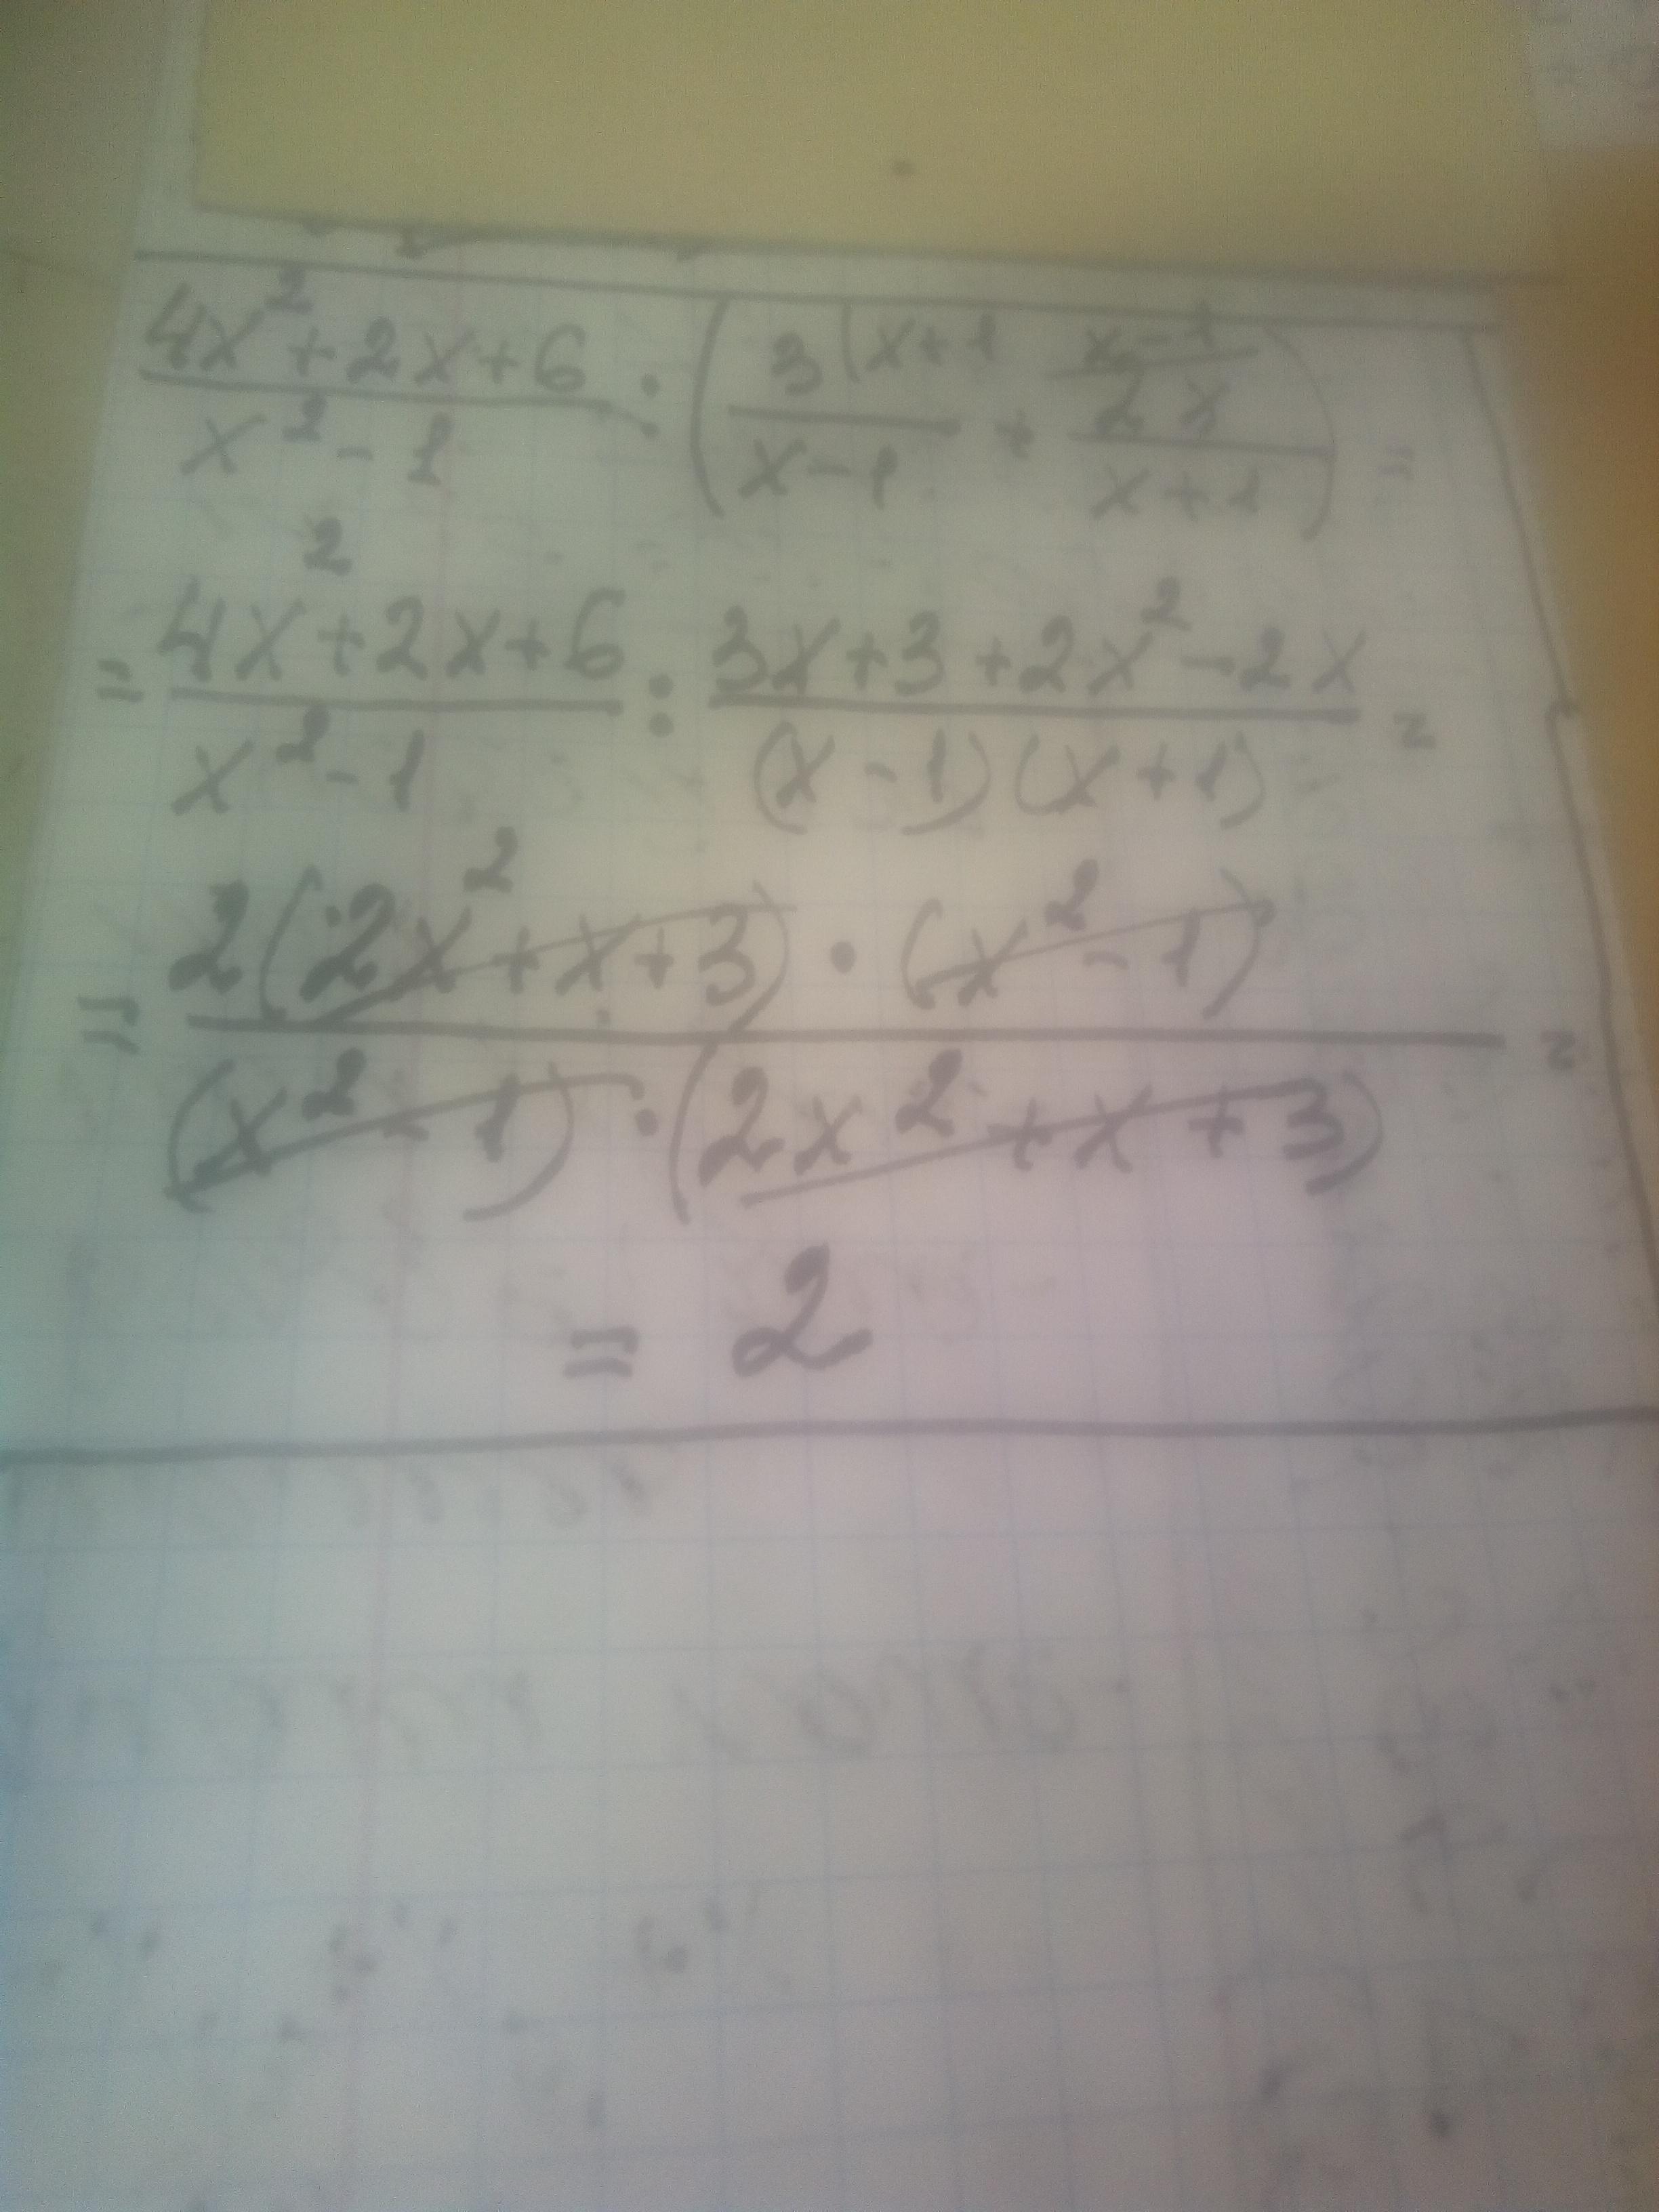 4x²+2x+6 / x²-1 : ( 3 (x+1 / x-1 + x-1 / 2x / x+1 ) =
= 4x²+2x+6 / x²-1 : 3x+3+2x²-2x / (x-1)(x+1) =
= 2(2x²+x+3)·(x²-1) / (x²-1)·(2x²+x+3) =
= 2